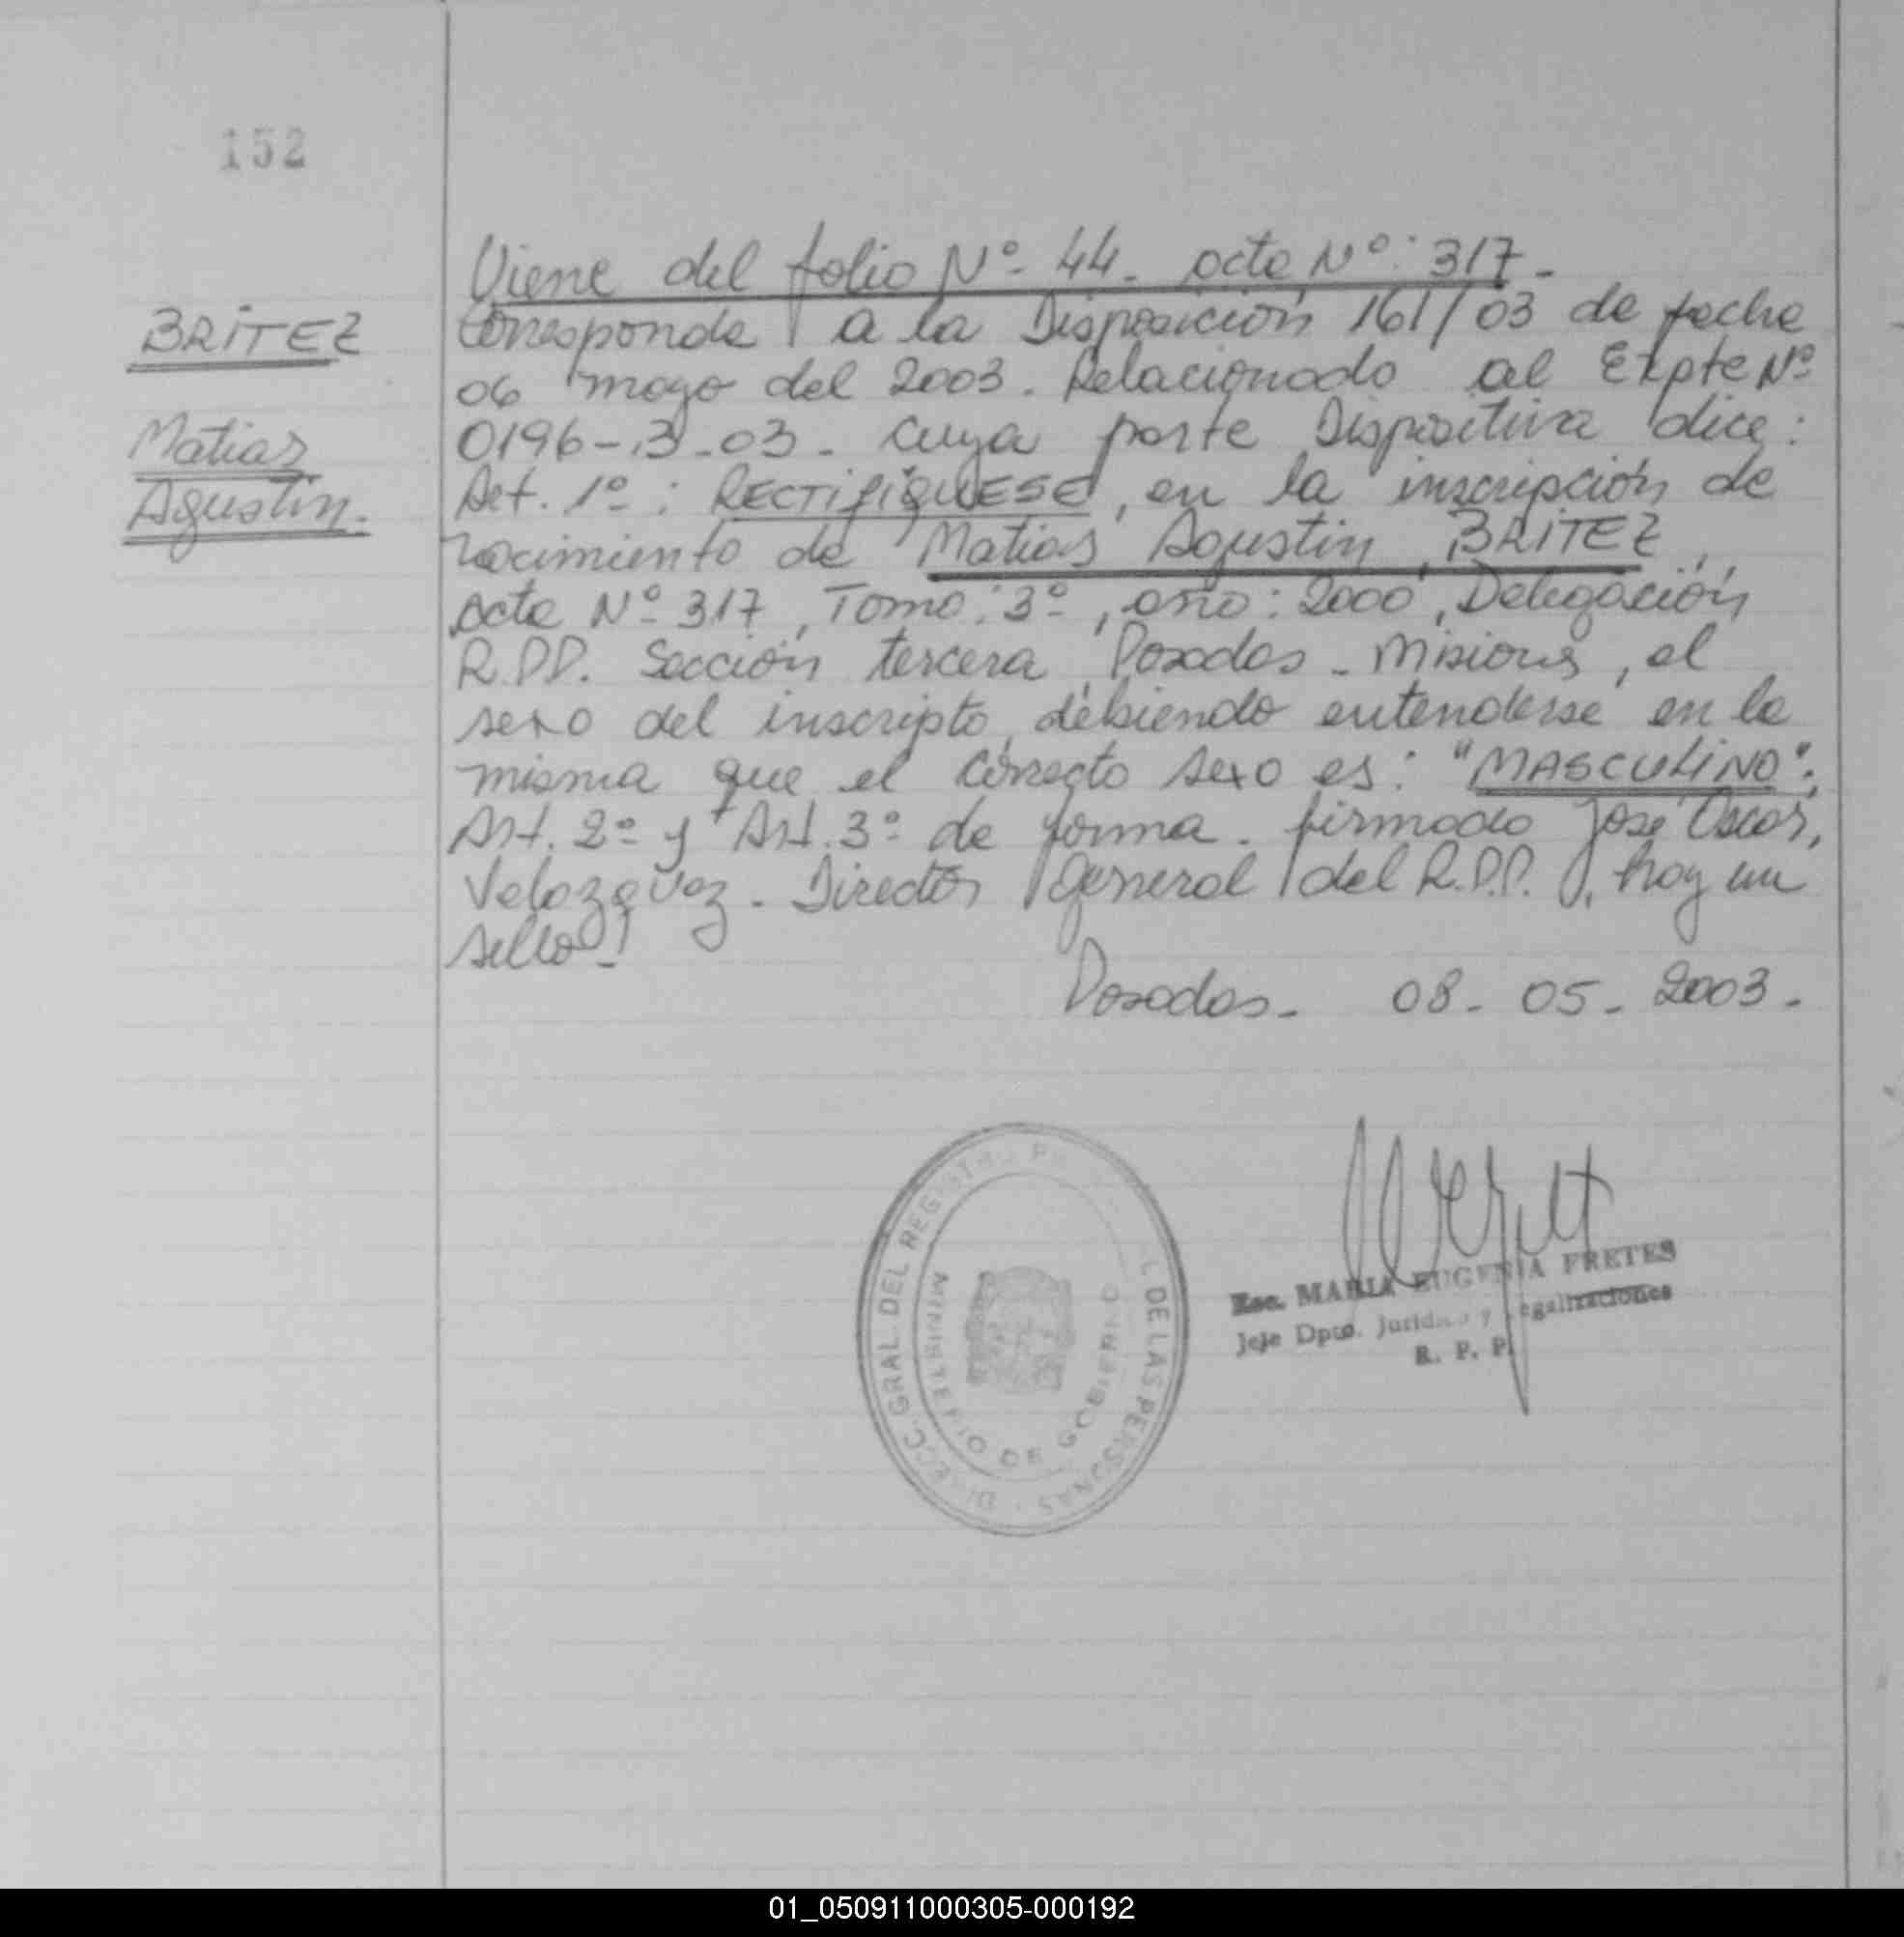 152
BRITEZ
Matias
Agustin.
Viene del folio Nº 44. acta Nº: 317.-
Corresponde a la Disposición 161/03 de fecha
06 mayo del 2003. Relacionado al Expte Nº
0196-3-03. Cuya parte Dispositiva dice:
Art. 1º: RECTIFIQUESE, en la inscripción de
nacimiento de Matias Agustin BRITEZ,
acta Nº 317, Tomo: 3º, año: 2000, Delegación
R.P.P. Sección tercera Posadas - Misiones, el
sexo del inscripto, debiendo entenderse en la
misma que el correcto sexo es: "MASCULINO".
Art. 2º y Art. 3º de forma. firmado José Oscar,
Velazquez. Director General del R.P.P. , hay un
sello.-
Posadas- 08-05-2003.
DIRECC. GRAL. DEL REGISTRO DE LAS PERSONAS
MINISTERIO DE GOBIERNO
Esc. MARIA EUGENIA FRETES
Jefe Dpto. Juridico y Legalizaciones
R. P. P.
01_050911000305-000192